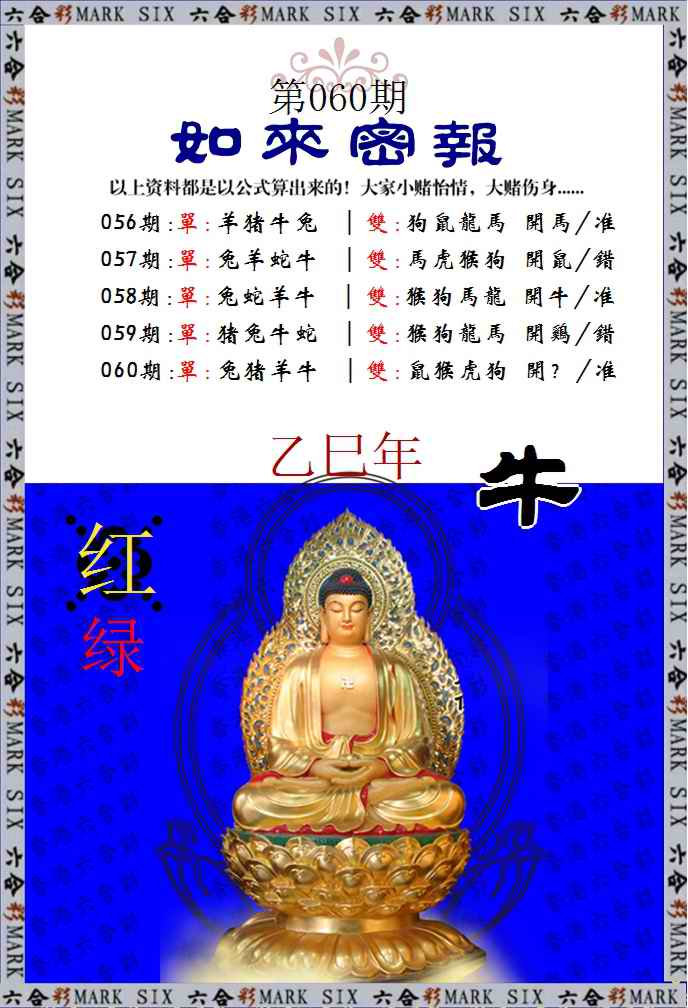 六合彩MARK SIX 六合彩MARK SIX 六合彩MARK SIX 六合彩MARK SIX
第060期
如來密報
以上资料都是以公式算出来的！大家小赌怡情，大赌伤身......
056期:單:羊猪牛兔 | 雙:狗鼠龍馬 開馬/准
057期:單:兔羊蛇牛 | 雙:馬虎猴狗 開鼠/錯
058期:單:兔蛇羊牛 | 雙:猴狗馬龍 開牛/准
059期:單:猪兔牛蛇 | 雙:猴狗龍馬 開鷄/錯
060期:單:兔猪羊牛 | 雙:鼠猴虎狗 開? /准
乙巳年
牛
红
绿
六合彩MARK SIX 六合彩MARK SIX 六合彩MARK SIX 六合彩MARK SIX